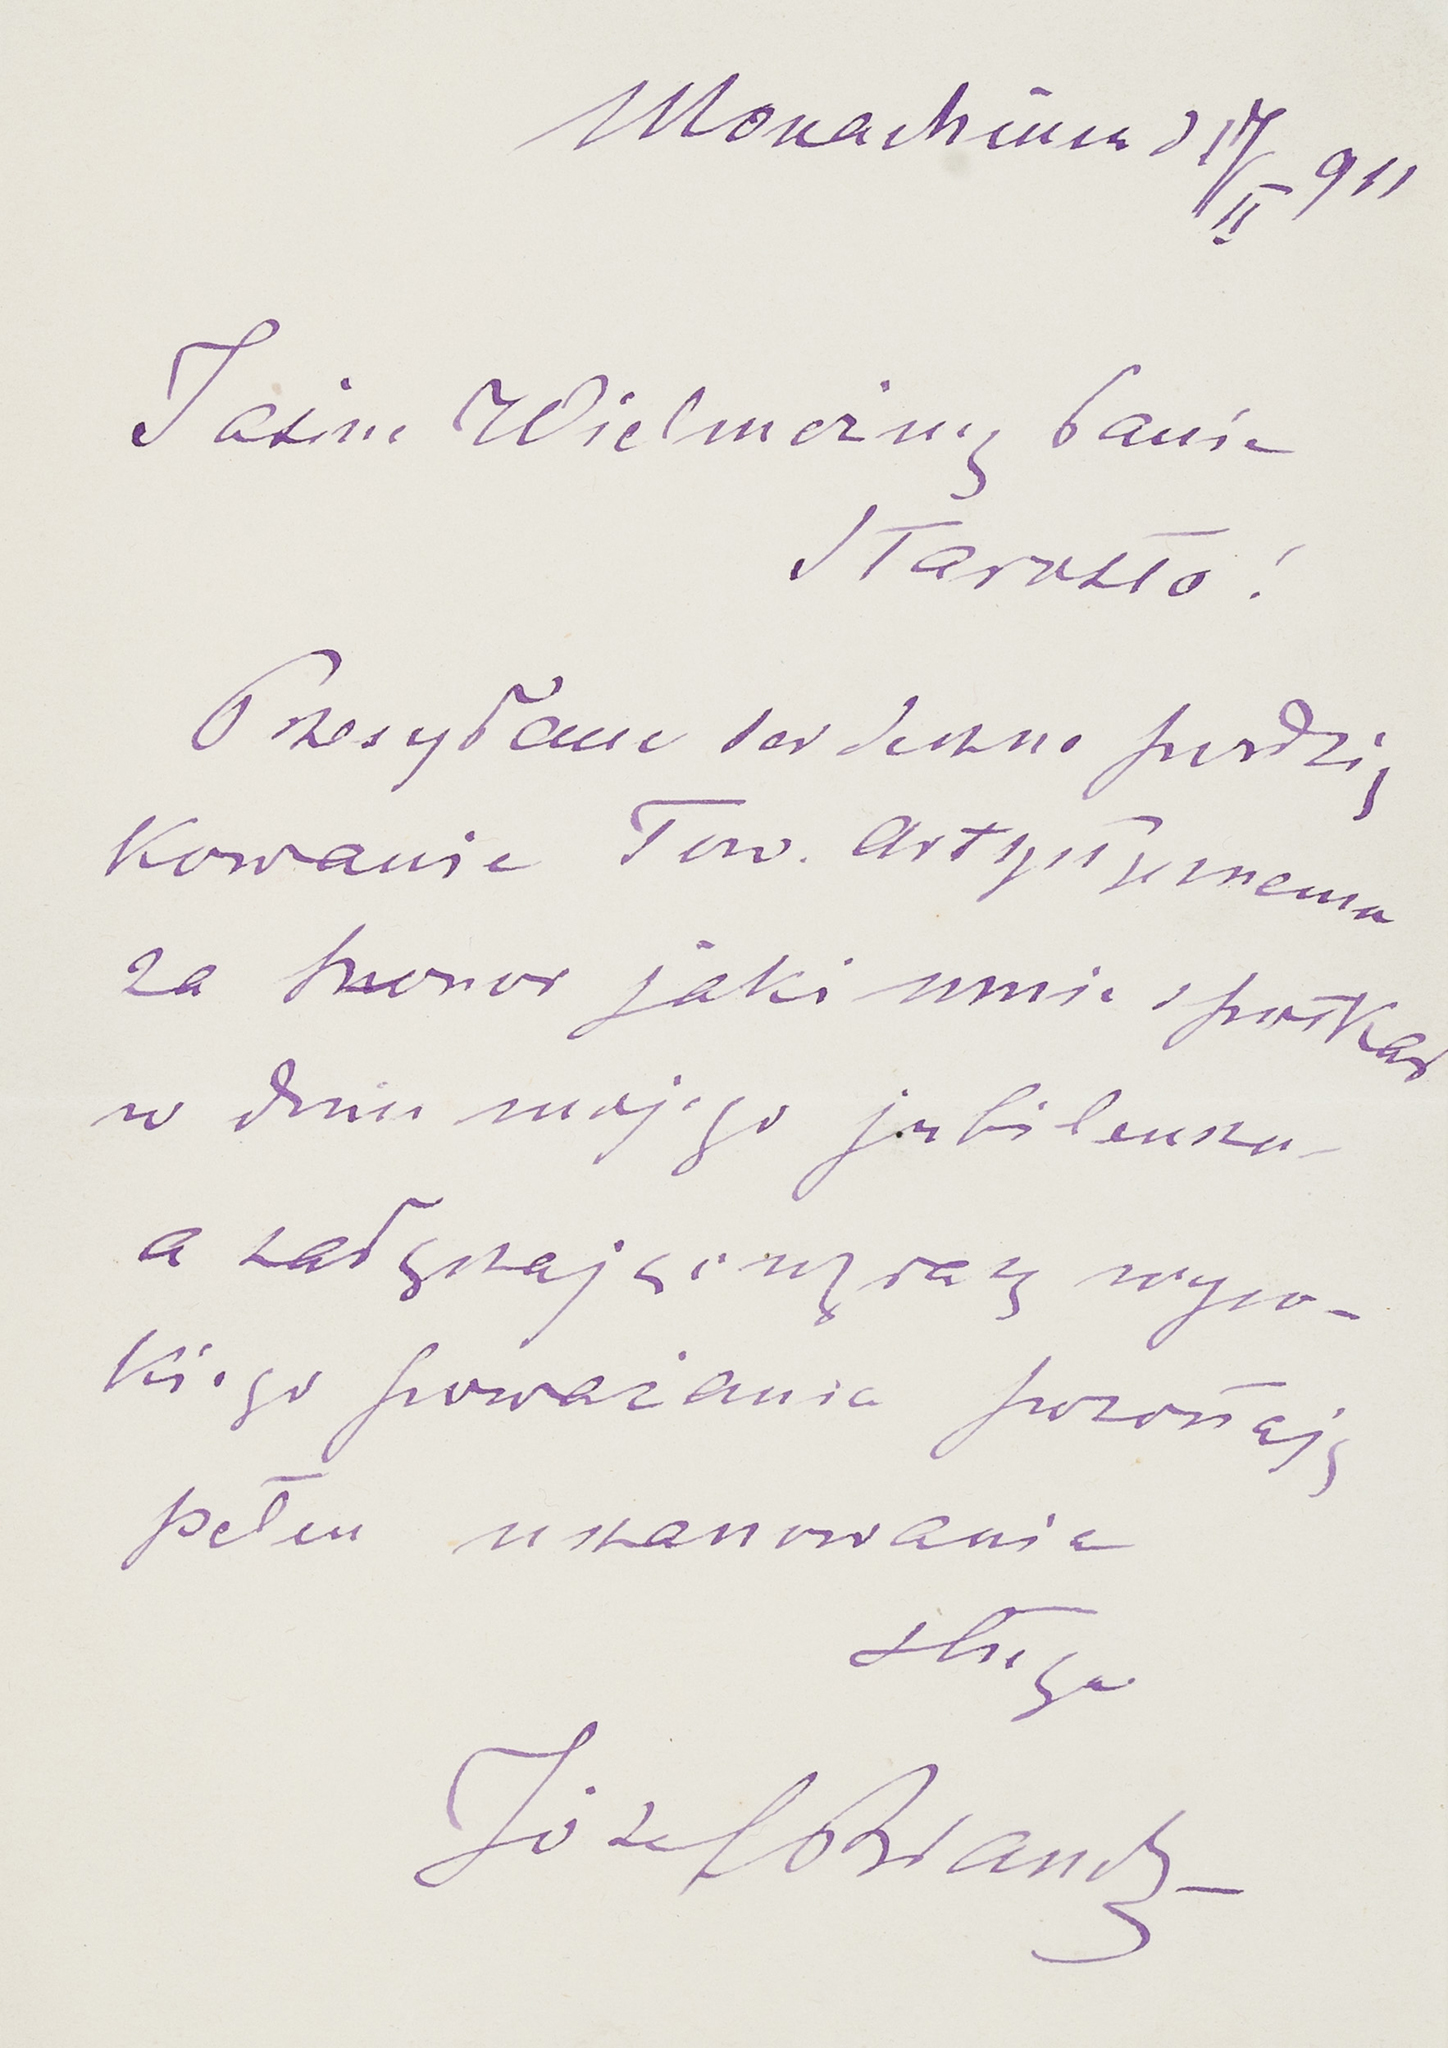 Monachium d 17/II 911
Jaśnie Wielmożny Panie
Starosto!
Przesyłam serdeczne podzię
kowanie Tow. Artystycznemu
za honor jaki mnie spotkał
w dniu mojego jubileusza –
a załączając wyrazy wyso-
kiego poważania pozostaję
pełen uszanowania
sługa
Józef Brandt